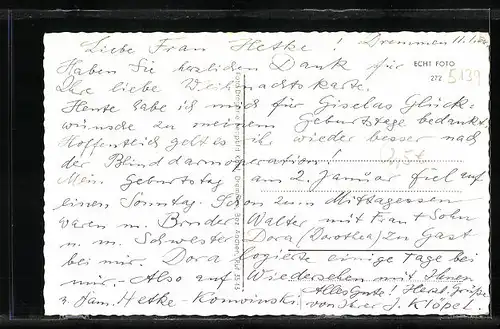 Liebe Frau Hetke! Dremmen 11.1.
Haben Sie herzlichen Dank für
Ihre liebe Weihnachtskarte.
Heute habe ich mich für Giselas Glück-
wünsche zu meinem Geburtstage bedankt.
Hoffentlich geht es ihr wieder besser nach
der Blinddarmoperation!
Mein Geburtstag am 2. Januar fiel auf
einen Sonntag. Schon zum Mittagessen
waren m. Bruder Walter mit Frau + Sohn
u. m. Schwester Dora (Dorothea) zu Gast
bei mir. Dora logierte einige Tage bei
mir. Also auf Wiedersehen mit Ihnen
u. Fam. Hetke-
Alles Gute! Herzl. Grüße
von Ihrer J. Klöpel.
ECHT FOTO
272
5139